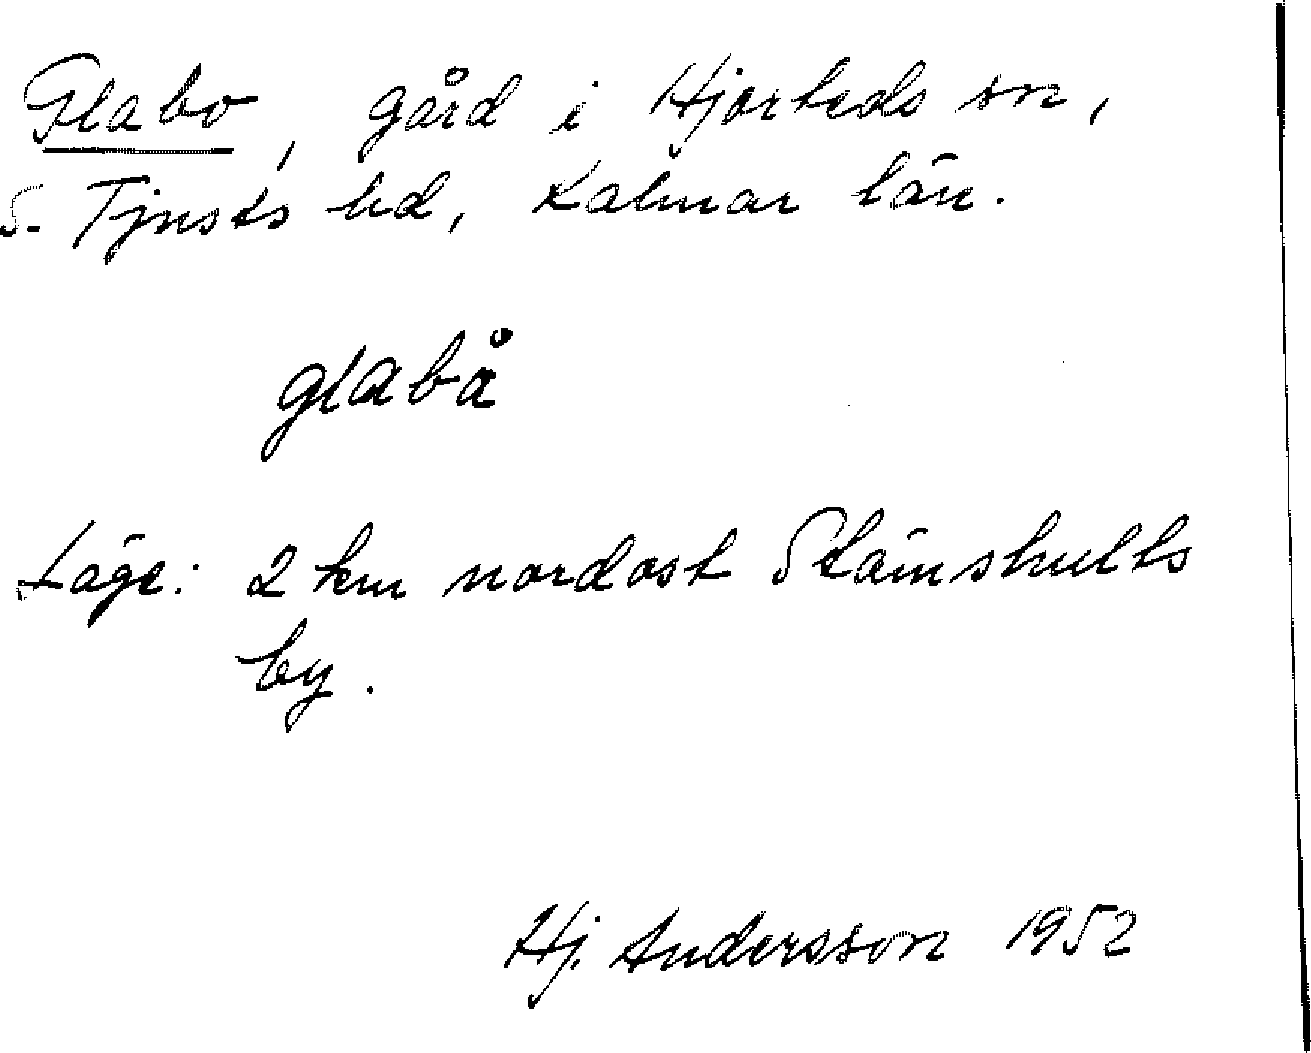 Glabo, gård i Hjorteds sn,
S. Tjusts hd, Kalmar län.
glabå
Läge: 2 km nordost Stämshults
by.
Hj. Andersson 1952